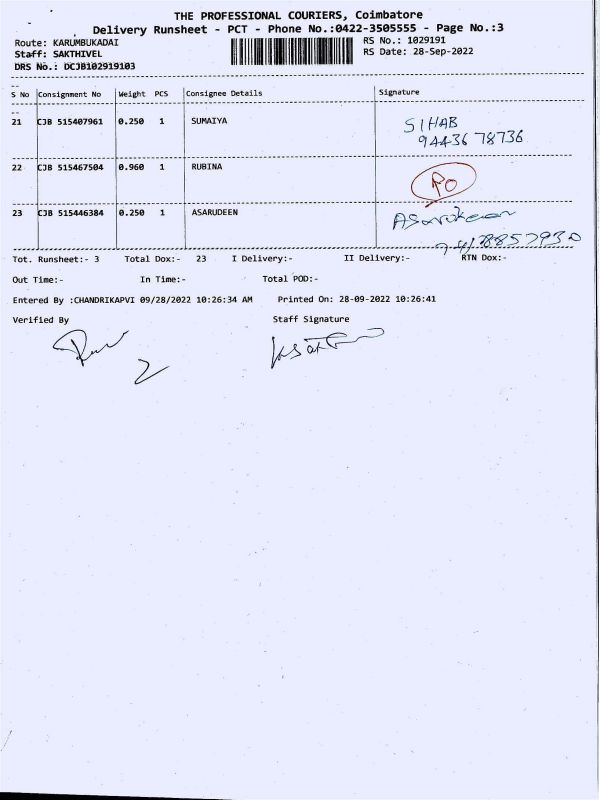 THE PROFESSIONAL COURIERS, Coimbatore
Delivery Runsheet - PCT - Phone No.:0422-3505555 - Page No.:3
Route: KARUMBUKADAI
RS No.: 1029191
Staff: SAKTHIVEL
RS Date: 28-Sep-2022
DRS No.: DCJB102919103
S No Consignment No Weight PCS Consignee Details Signature
21 CJB 515407961 0.250 1 SUMAIYA SIHAB
94436 78736
22 CJB 515467504 0.960 1 RUBINA RO
23 CJB 515446384 0.250 1 ASARUDEEN
Tot. Runsheet:- 3 Total Dox:- 23 I Delivery:- II Delivery:- RTN Dox:-
Out Time:- In Time:- Total POD:-
Entered By :CHANDRIKAPVI 09/28/2022 10:26:34 AM Printed On: 28-09-2022 10:26:41
Verified By Staff Signature